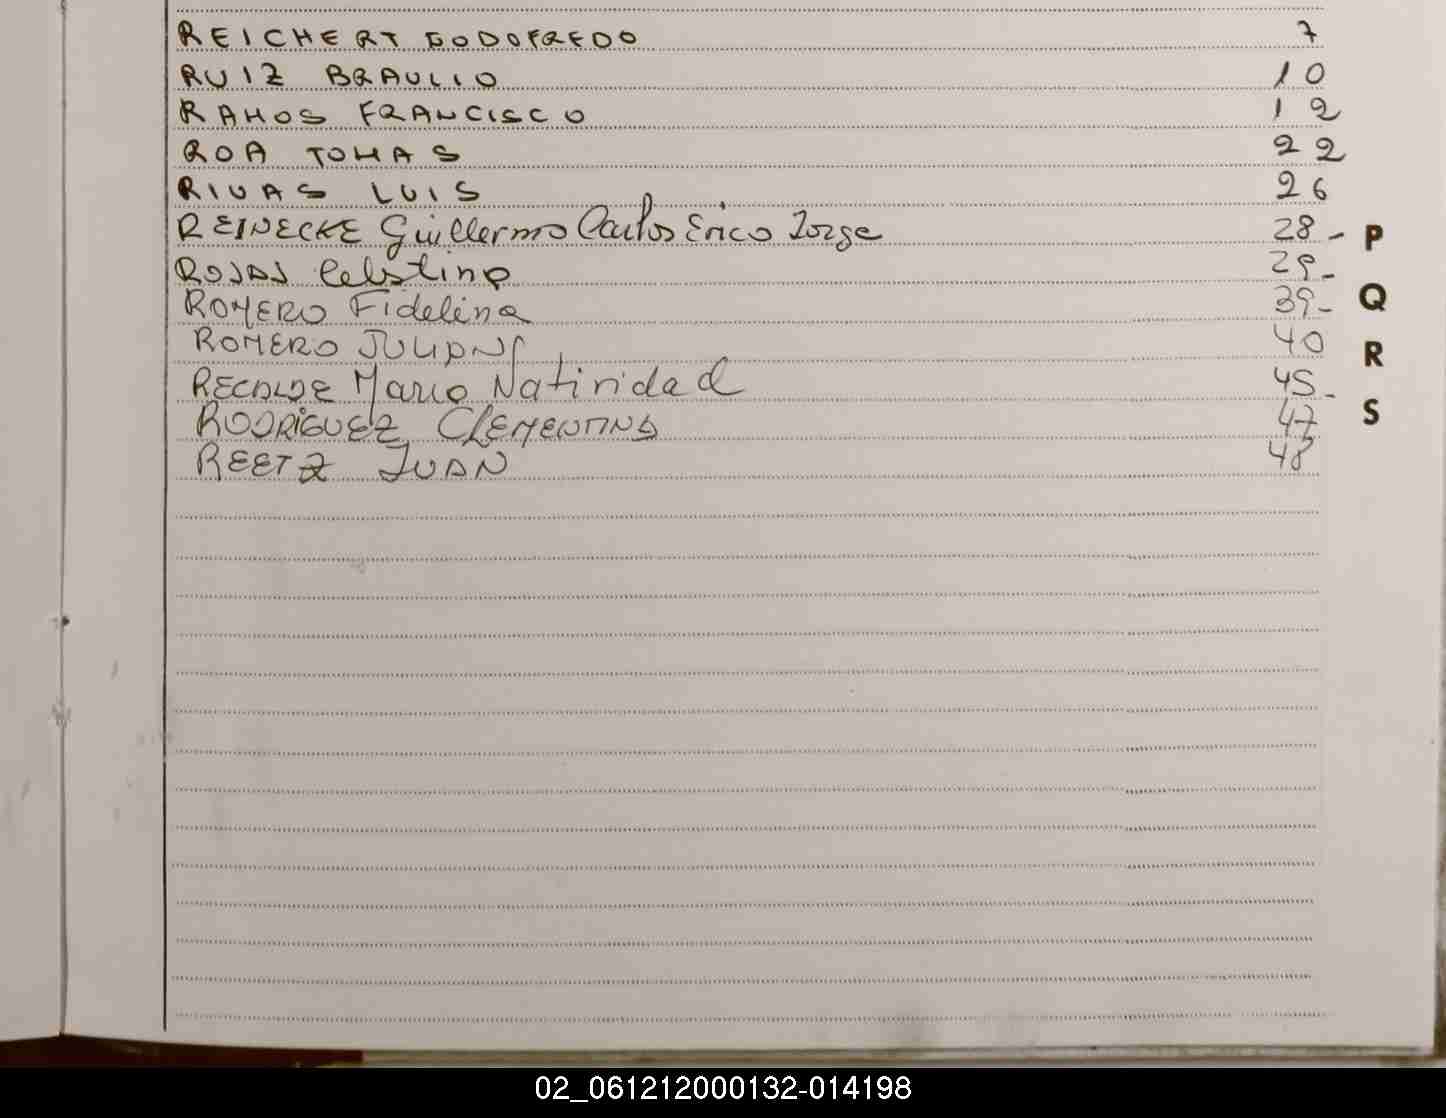 REICHERT GODOFREDO 7
RUIZ BRAULIO 10
RAMOS FRANCISCO 12
ROA TOMAS 22
RIVAS LUIS 26
REINECKE Guillermo Carlos Erico Jorge 28-
ROJAS Celestino 29-
ROMERO Fidelina 39-
ROMERO JULIANA 40
RECALDE Mario Natividad 45-
RODRIGUEZ CLEMENTINA 47
REETZ JUAN 48
P
Q
R
S
02_061212000132-014198